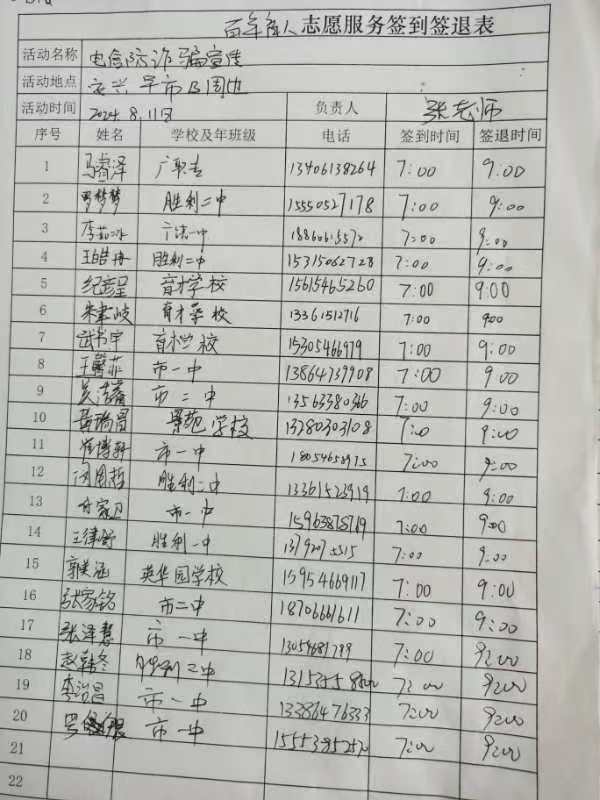 百年育人志愿服务签到签退表
活动名称 电信防诈骗宣传
活动地点 安兴早市及周边
活动时间 2024.8.11日 负责人 张老师
序号 姓名 学校及年班级 电话 签到时间 签退时间
1 马睿泽 广职专 13406138264 7:00 9:00
2 罗梦梦 胜利二中 15550527178 7:00 9:00
3 一中 7:00 9:00
4 王皓冉 胜利二中 15315062728 7:00 9:00
5 育才学校 15615465260 7:00 9:00
6 育才学校 13361512716 7:00 9:00
7 武书宇 育才学校 15305466979 7:00 9:00
8 王馨菲 市一中 13864739908 7:00 9:00
9 市二中 13563380366 7:00 9:00
10 黄瑞昌 景苑学校 13780303108 7:00 9:00
11 崔博轩 市一中 18054658975 7:00 9:00
12 胜利二中 13361523919 7:00 9:00
13 市一中 7:00 9:00
14 王律舒 胜利一中 7:00 9:00
15 郭美涵 英华园学校 15954669117 7:00 9:00
16 张家铭 市二中 18706661611 7:00 9:00
17 张泽慧 市一中 13054681799 7:00 9:00
18 赵韩冬 胜利二中 7:00 9:00
19 李治昌 市一中 13386476333 7:00 9:00
20 罗 市一中 7:00 9:00
21
22